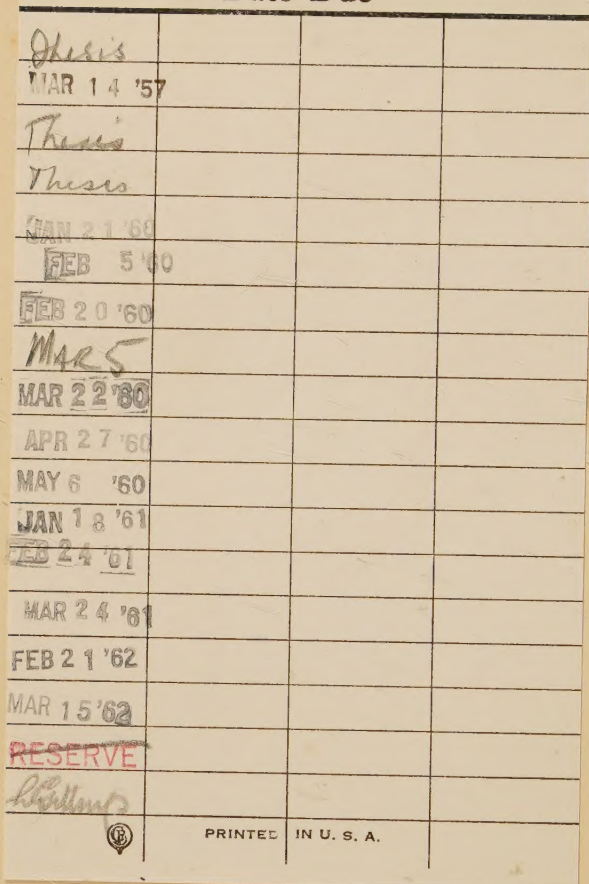 Thesis
MAR 14 '57
Thesis
Thesis
JAN 21 '60
FEB 5 '60
FEB 20 '60
MAR 5
MAR 22 '60
APR 27 '60
MAY 6 '60
JAN 18 '61
FEB 24 '61
MAR 24 '61
FEB 21 '62
MAR 15 '62
RESERVE
PRINTED IN U. S. A.